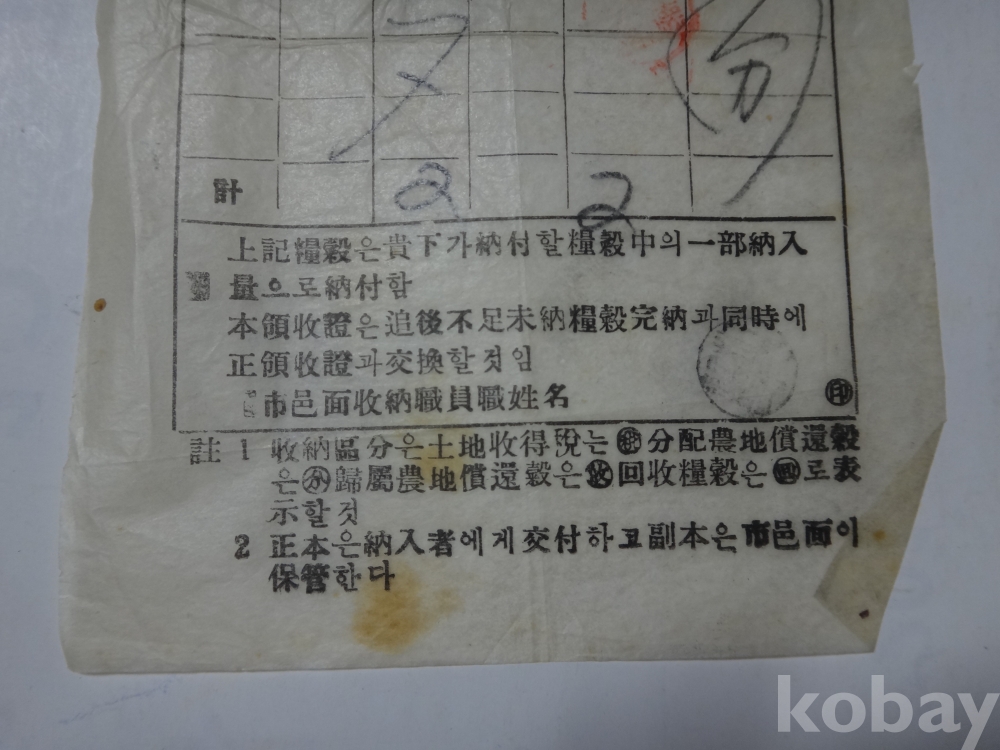 分
計
2 2
上記糧穀은貴下가納付할糧穀中의一部納入
量으로納付함
本領收證은追後不足未納糧穀完納과同時에
正領收證과交換할것임
市邑面收納職員職姓名 ㊞
註 1 收納區分은土地收得稅는 分配農地償還穀
은 分 歸屬農地償還穀은 回收糧穀은 로表
示할것
2 正本은納入者에게交付하고副本은市邑面이
保管한다
kobay